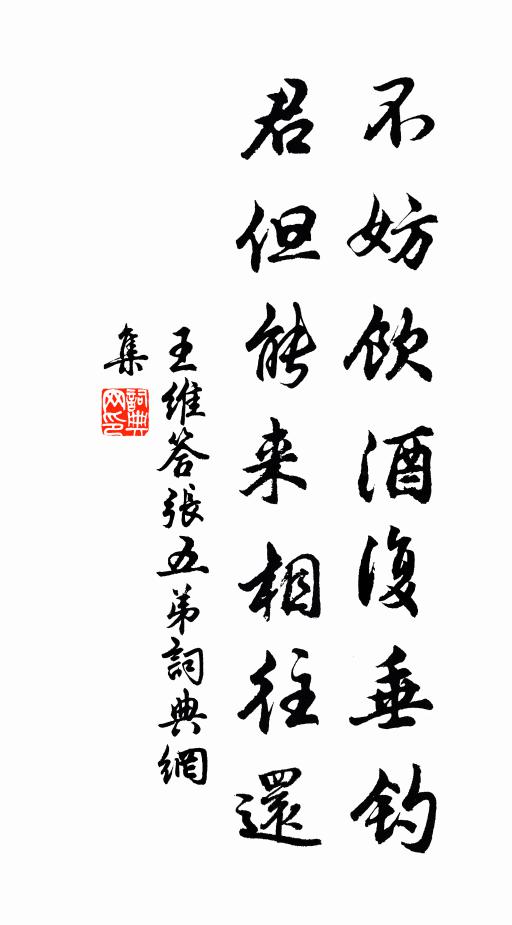 不妨饮酒復垂钓
君但能来相往還
王维答張五弟詞典網
集
詞典网印